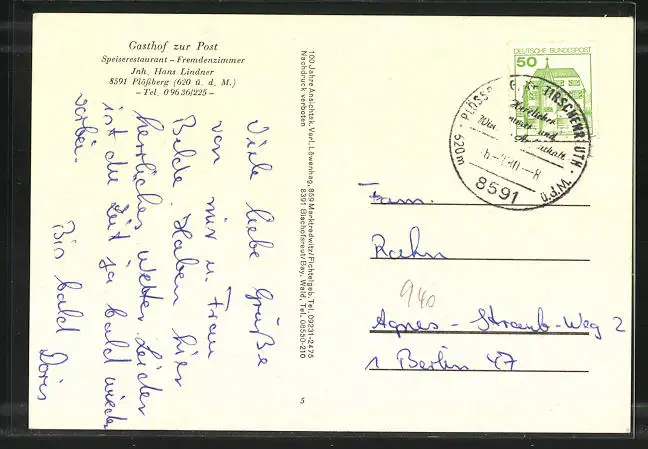 Gasthof zur Post
Speiserestaurant – Fremdenzimmer
Inh. Hans Lindner
8591 Plößberg (620 ü. d. M.)
– Tel. 0 96 36/225 –
Viele liebe Grüße
von mir u. Frau
Belde. Haben hier
herrliches Wetter. Leider
ist die Zeit ja bald wieder
vorbei.
Bis bald Doris
100 Jahre Ansichtsk. Verl. Löwenhag, 859 Marktredwitz/Fichtelgeb. Tel. 09231-2475
Nachdruck verboten 8391 Bischofsreut/Bay. Wald, Tel. 08550-210
5
DEUTSCHE BUNDESPOST
50
TIRSCHENREUTH
620m
8591
Fam.
Raehn
940
Agnes - Straub-Weg 2
1 Berlin 47